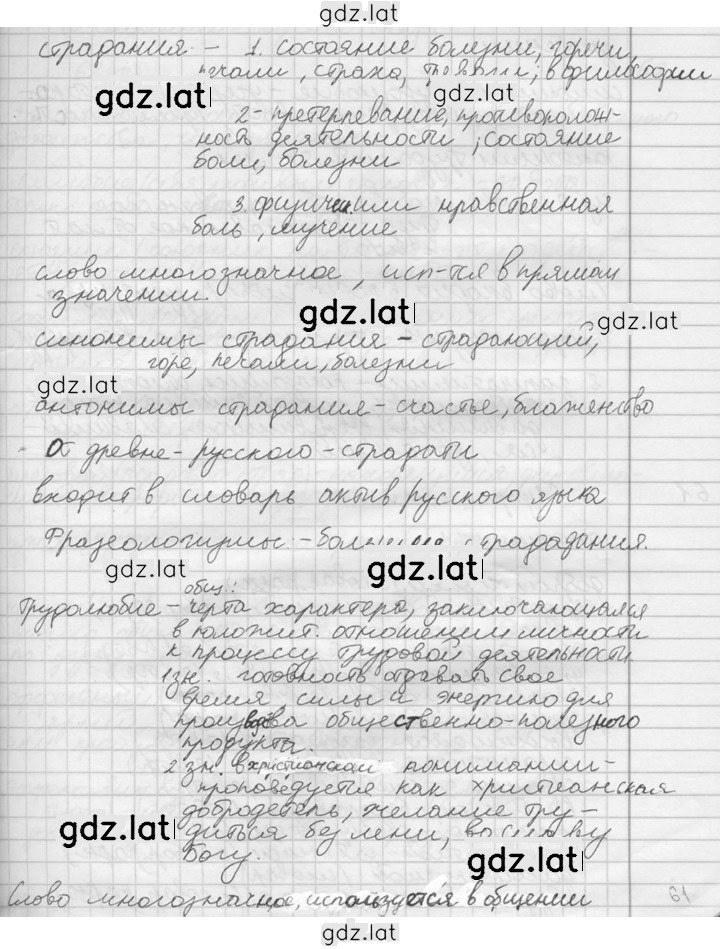 gdz.lat
страдания – 1. состояние болезни, горечи,
печали, страха, тревоги, в философии
gdz.lat
gdz.lat
2 - претерпевание, противополож-
ность деятельности, состояние
боли, болезни
3. физич. или нравственная
боль, мучение
слово многозначное, исп-тся в прямом
значении.
gdz.lat
gdz.lat
синонимы страдания – страдающий,
горе, печали, болезни
gdz.lat
антонимы страдания – счастье, блаженство
древне-русского – страдати
входит в словарь актив русского языка
Фразеологизмы. – стрададания.
gdz.lat
gdz.lat
общ.:
Трудолюбие – черта характера, заключающаяся
в положит. отношении личности
к процессу трудовой деятельности.
1 зн. готовность отдавать свое
время силы и энергию для
произ-ва общественно-полезного
продукта.
2 зн. в христианском понимании –
проповедуется как христианская
добродетель, желание тру-
диться без лени, во славу
Богу.
gdz.lat
gdz.lat
Слово многозначное, используется в общении
61
gdz.lat